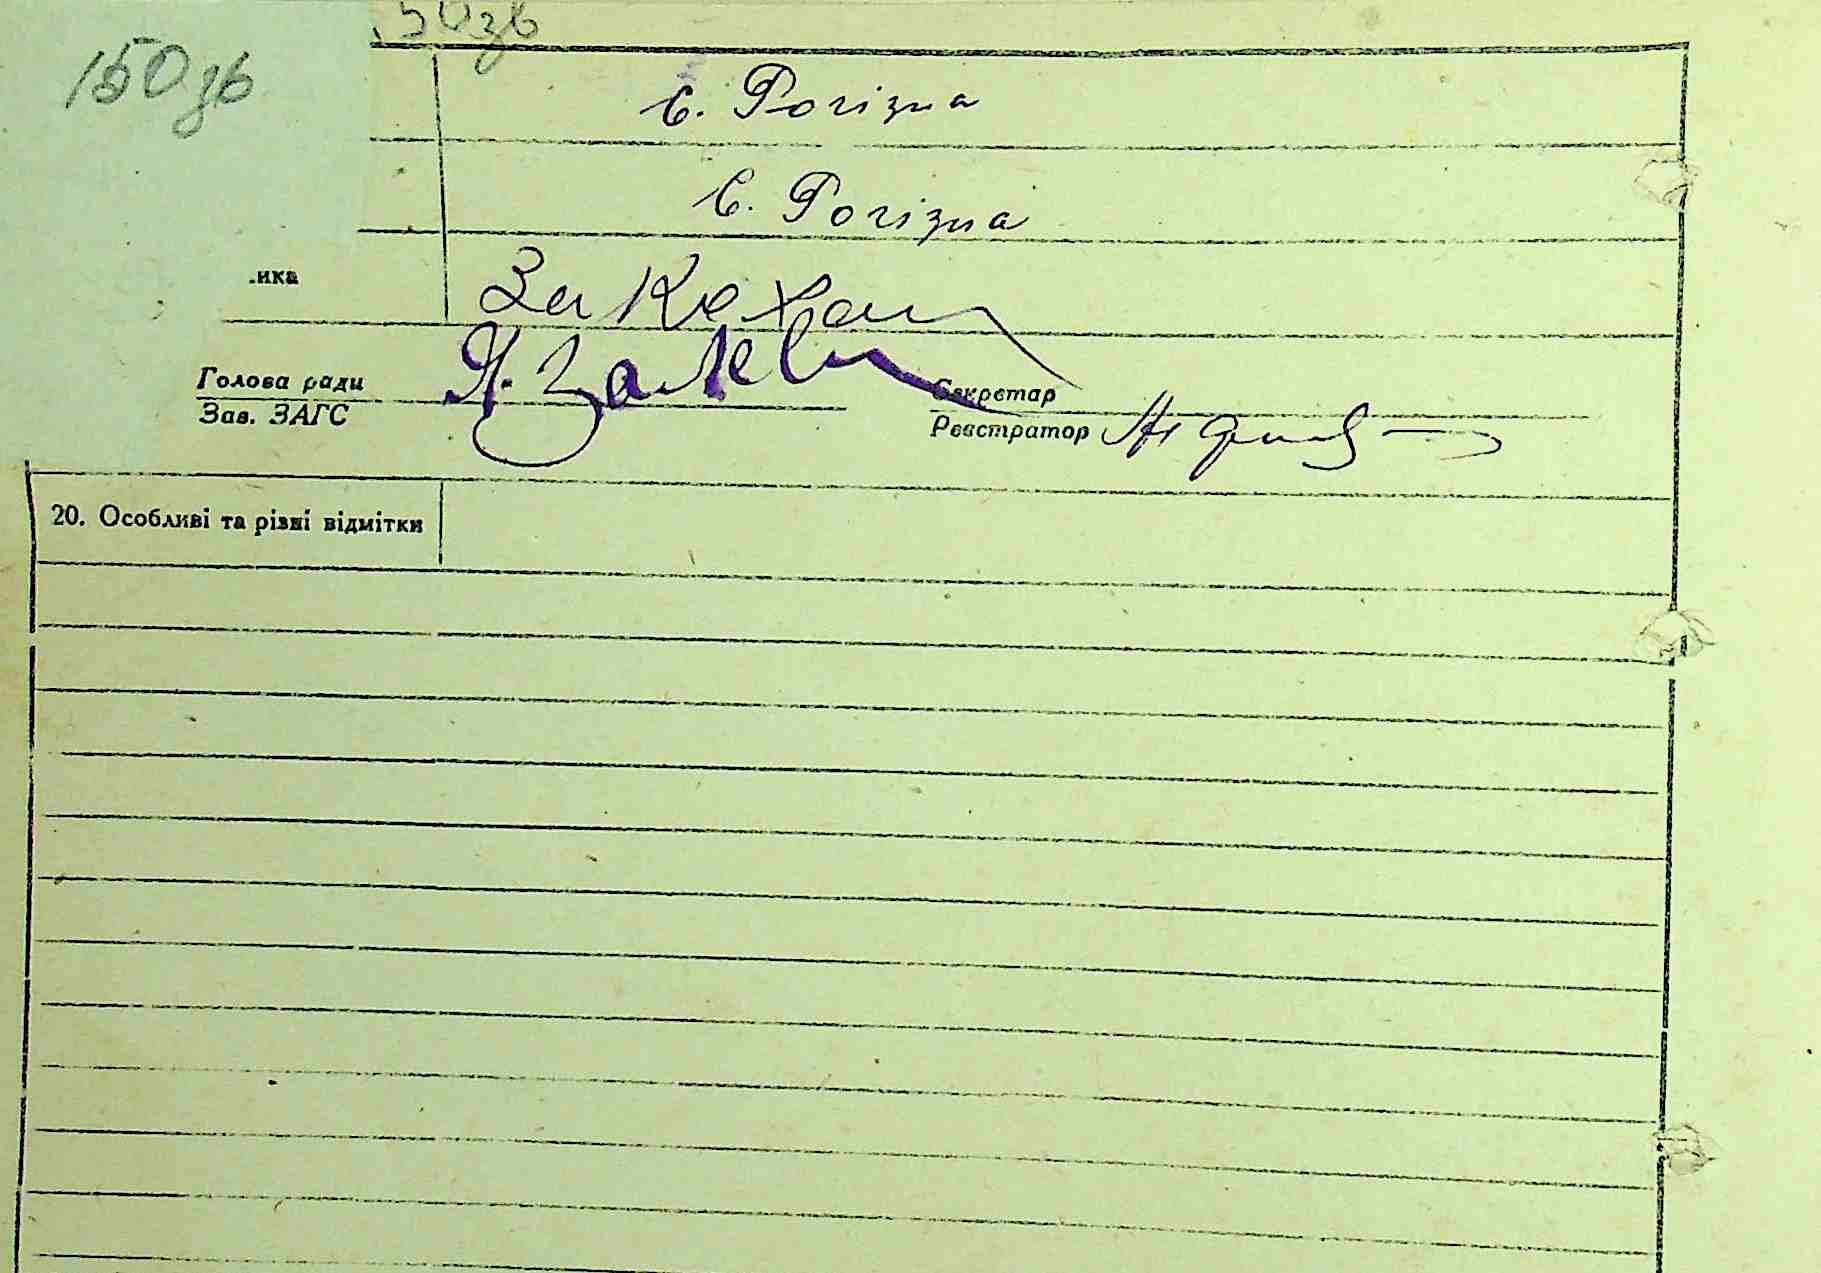 50зв
150зв
с. Рогізна
с. Рогізна
.ика
Голова ради
Зав. ЗАГС
Секретар
Реєстратор
20. Особливі та різні відмітки